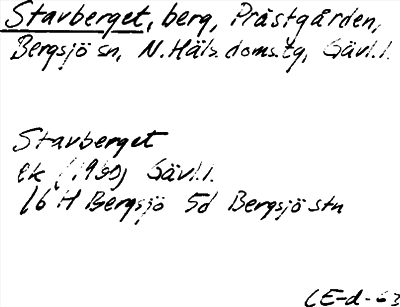 Stavberget, berg, Prästgården,
Bergsjö sn, N. Häls. doms.tg, Gävl.l.
Stavberget
ek (1960) Gävl.l.
16 H Bergsjö 5d Bergsjö stn
CE-d-63